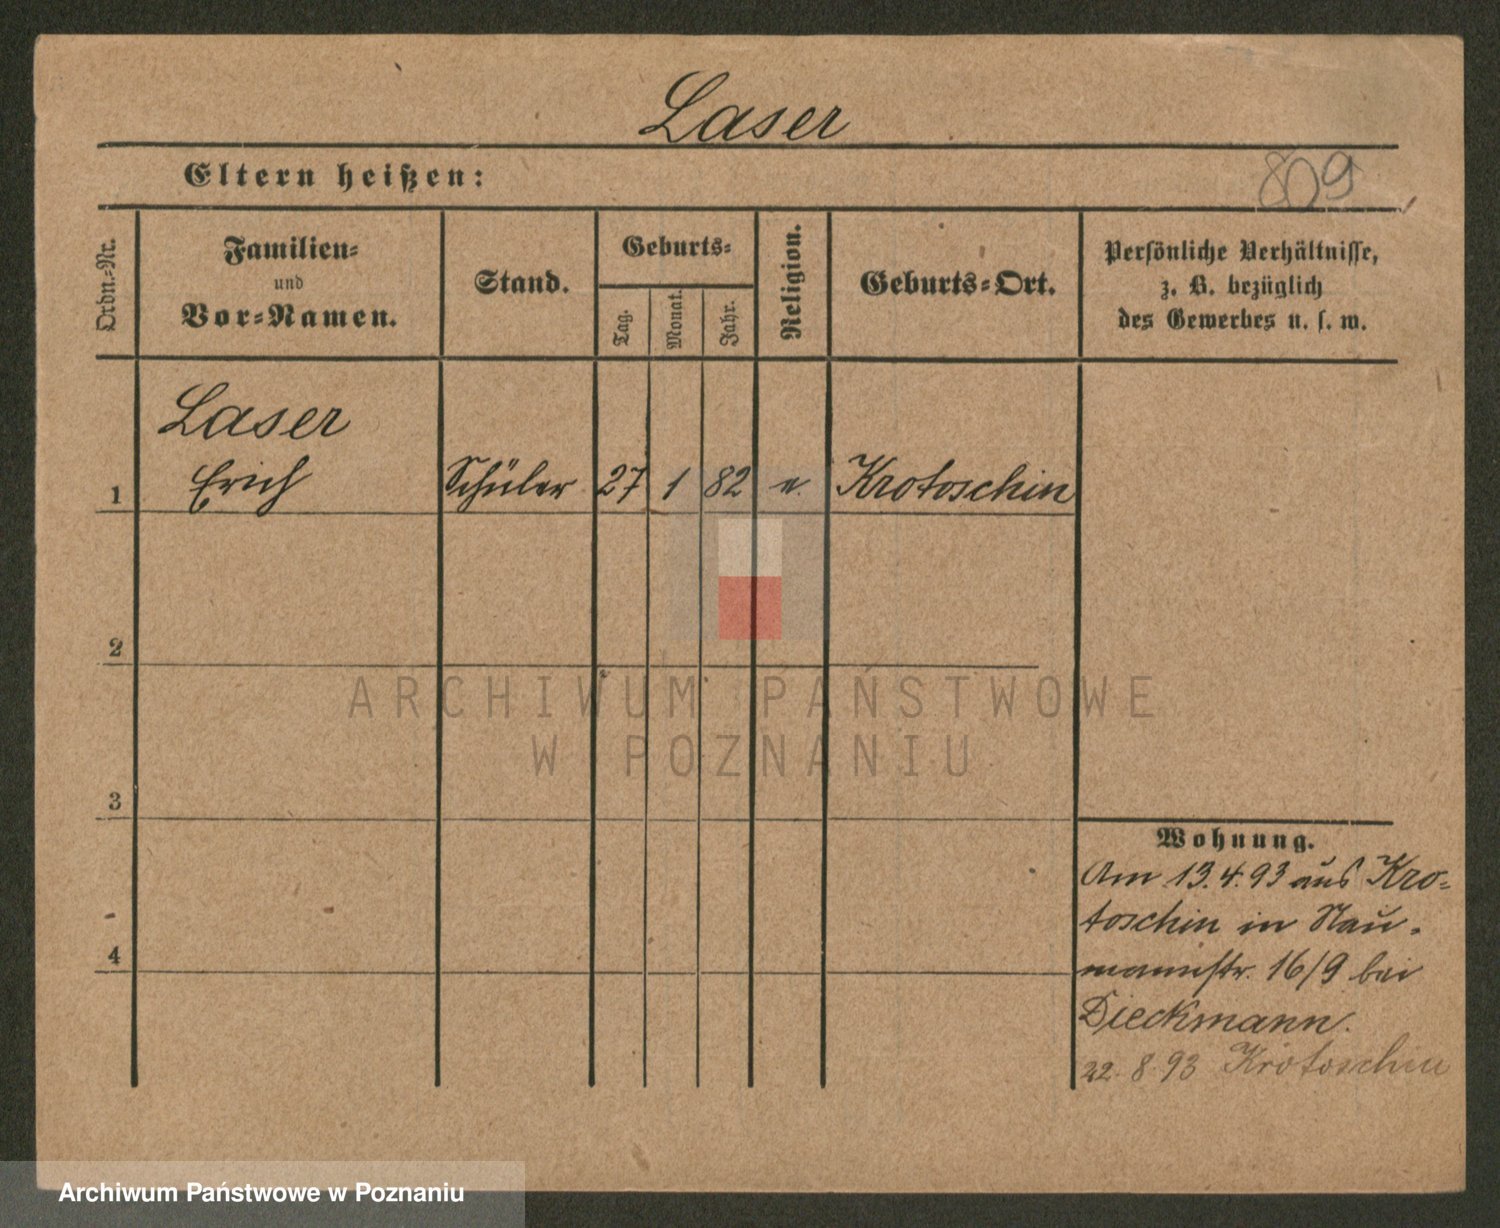 Laser
Eltern heißen:
809
Ordn.-Nr.
Familien-
und
Vor-Namen.
Stand.
Geburts-
Tag.
Monat.
Jahr.
Religion.
Geburts-Ort.
Persönliche Verhältnisse,
z. B. bezüglich
des Gewerbes u. s. w.
Laser
1 Erich Schüler 27 1 82 e. Krotoschin
2
ARCHIWUM PAŃSTWOWE
W POZNANIU
3
Wohnung.
Am 13.4.93 aus Kro-
toschin in Nau-
4
mannstr. 16/9 bei
Dieckmann.
22.8.93 Krotoschin
Archiwum Państwowe w Poznaniu